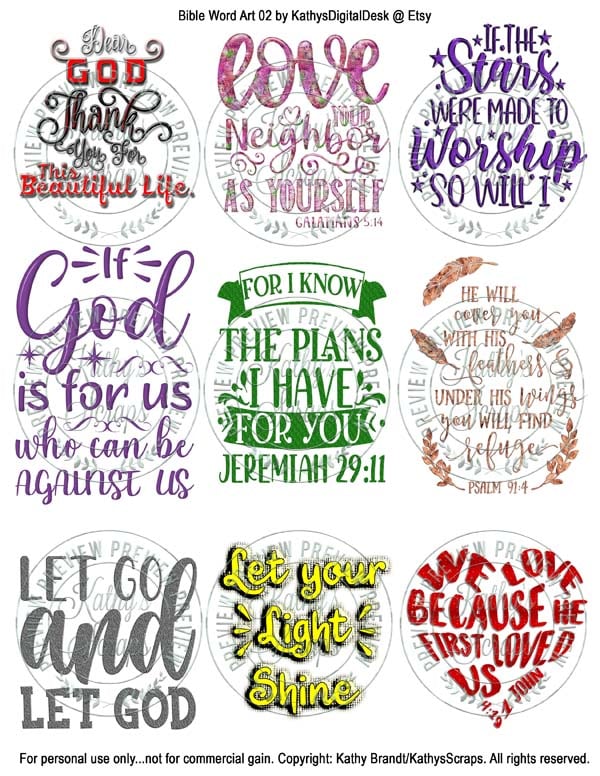 Bible Word Art 02 by KathysDigitalDesk @ Etsy
Dear
GOD
Thank
You For
This
Beautiful Life.
love
YOUR
Neighbor
AS YOURSELF
GALATIANS 5:14
IF THE
Stars
WERE MADE TO
Worship
SO WILL I
If
God
is for us
who can be
AGAINST US
FOR I KNOW
THE PLANS
I HAVE
FOR YOU
JEREMIAH 29:11
HE WILL
cover you
WITH HIS
feathers &
UNDER HIS wings
you WILL FIND
refuge
PSALM 91:4
LET GO
and
LET GOD
Let your
Light
Shine
WE LOVE
BECAUSE HE
FIRST LOVED
US
1 JOHN
4:19
PREVIEW PREVIEW PREVIEW
Kathy's
Scraps
For personal use only...not for commercial gain. Copyright: Kathy Brandt/KathysScraps. All rights reserved.